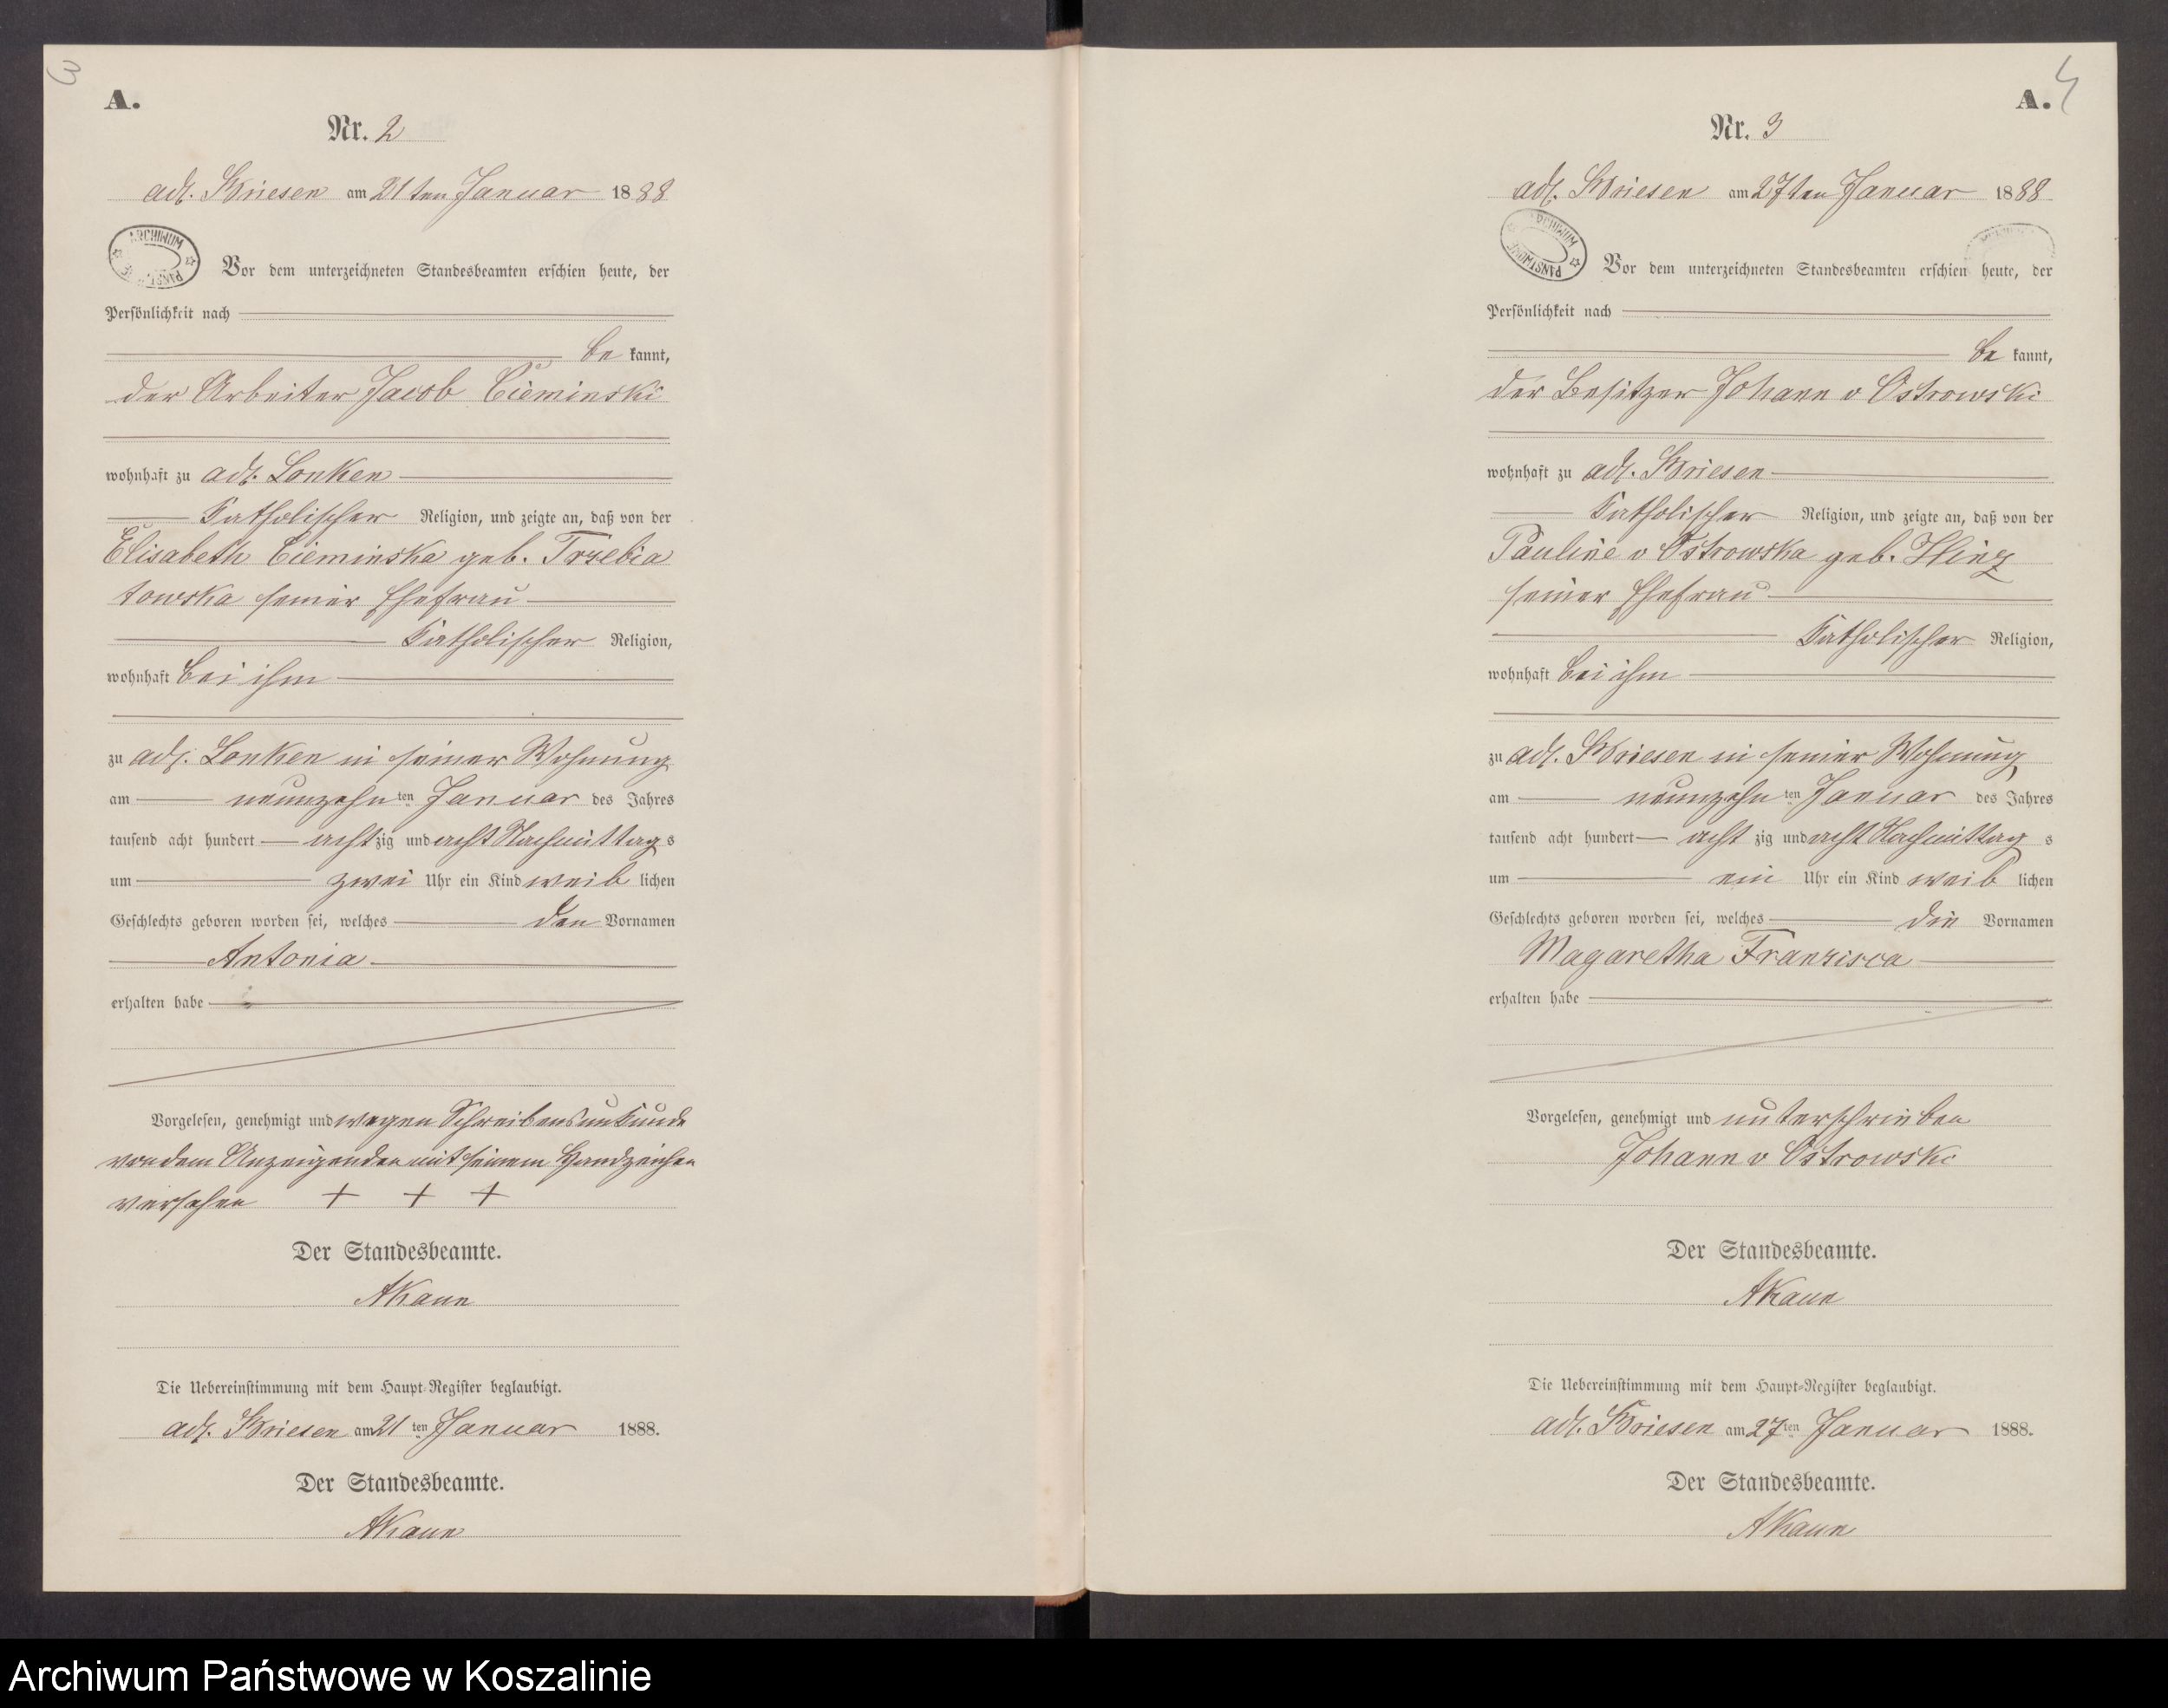 3
A.
Nr. 2
adl. Briesen am 21ten Januar 1888
ARCHIWUM
Vor dem unterzeichneten Standesbeamten erschien heute, der
Persönlichkeit nach
be kannt,
der Arbeiter Jacob Cieminski
wohnhaft zu adl. Lonken
Katholischer Religion, und zeigte an, daß von der
Elisabeth Cieminska geb. Trzebia
towska seiner Ehefrau
Katholischer Religion,
wohnhaft bei ihm
zu adl. Lonken in seiner Wohnung
am neunzehn ten Januar des Jahres
tausend acht hundert acht zig und acht Nachmittag s
um zwei Uhr ein Kind weib lichen
Geschlechts geboren worden sei, welches den Vornamen
Antonia
erhalten habe
Vorgelesen, genehmigt und wegen Schreibensunkunde
von dem Anzeigenden mit seinem Handzeichen
versehen + + +
Der Standesbeamte.
AKaun
Die Uebereinstimmung mit dem Haupt-Register beglaubigt.
adl. Briesen am 21 ten Januar 1888.
Der Standesbeamte.
AKaun
4
A.
Nr. 3
adl. Briesen am 27ten Januar 1888
ARCHIWUM PAŃSTWOWE
Vor dem unterzeichneten Standesbeamten erschien heute, der
Persönlichkeit nach
be kannt,
der Besitzer Johann v Ostrowski
wohnhaft zu adl. Briesen
Katholischer Religion, und zeigte an, daß von der
Pauline v Ostrowska geb. Hinz
seiner Ehefrau
Katholischer Religion,
wohnhaft bei ihm
zu adl. Briesen in seiner Wohnung
am neunzehn ten Januar des Jahres
tausend acht hundert acht zig und acht Nachmittag s
um ein Uhr ein Kind weib lichen
Geschlechts geboren worden sei, welches die Vornamen
Magaretha Franzisca
erhalten habe
Vorgelesen, genehmigt und unterschrieben
Johann v Ostrowski
Der Standesbeamte.
AKaun
Die Uebereinstimmung mit dem Haupt-Register beglaubigt.
adl. Briesen am 27 ten Januar 1888.
Der Standesbeamte.
AKaun
Archiwum Państwowe w Koszalinie